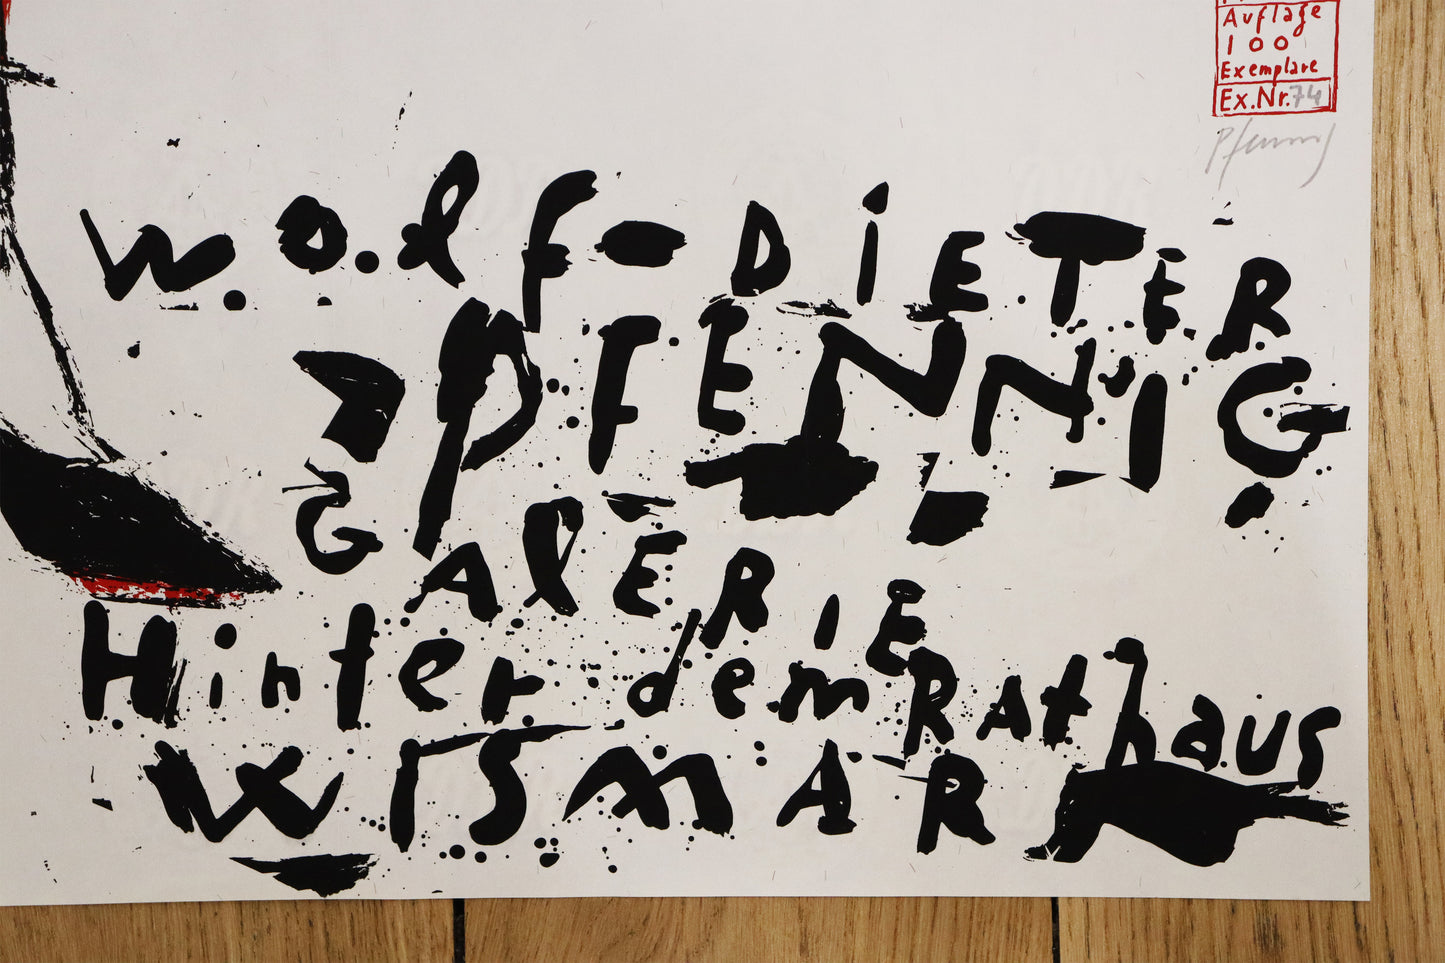 Auflage
100
Exemplare
Ex.Nr.74
Pfennig
Wolf-DiETER
PFENNiG
GalERIE
Hinter dem Rathaus
WISMAR